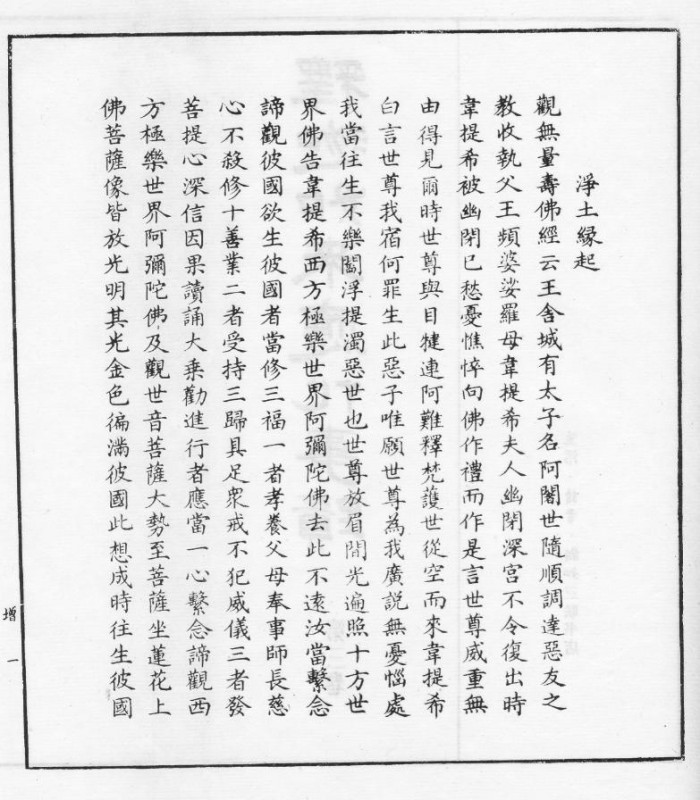 淨土緣起
觀無量壽佛經云王舍城有太子名阿闍世隨順調達惡友之
教收執父王頻婆娑羅母韋提希夫人幽閉深宮不令復出時
韋提希被幽閉已愁憂憔悴向佛作禮而作是言世尊威重無
由得見爾時世尊與目犍連阿難釋梵護世從空而來韋提希
白言世尊我宿何罪生此惡子唯願世尊為我廣說無憂惱處
我當往生不樂閻浮提濁惡世也世尊放眉間光遍照十方世
界佛告韋提希西方極樂世界阿彌陀佛去此不遠汝當繫念
諦觀彼國欲生彼國者當修三福一者孝養父母奉事師長慈
心不殺修十善業二者受持三歸具足眾戒不犯威儀三者發
菩提心深信因果讀誦大乘勸進行者應當一心繫念諦觀西
方極樂世界阿彌陀佛及觀世音菩薩大勢至菩薩坐蓮花上
佛菩薩像皆放光明其光金色徧滿彼國此想成時往生彼國
增 一